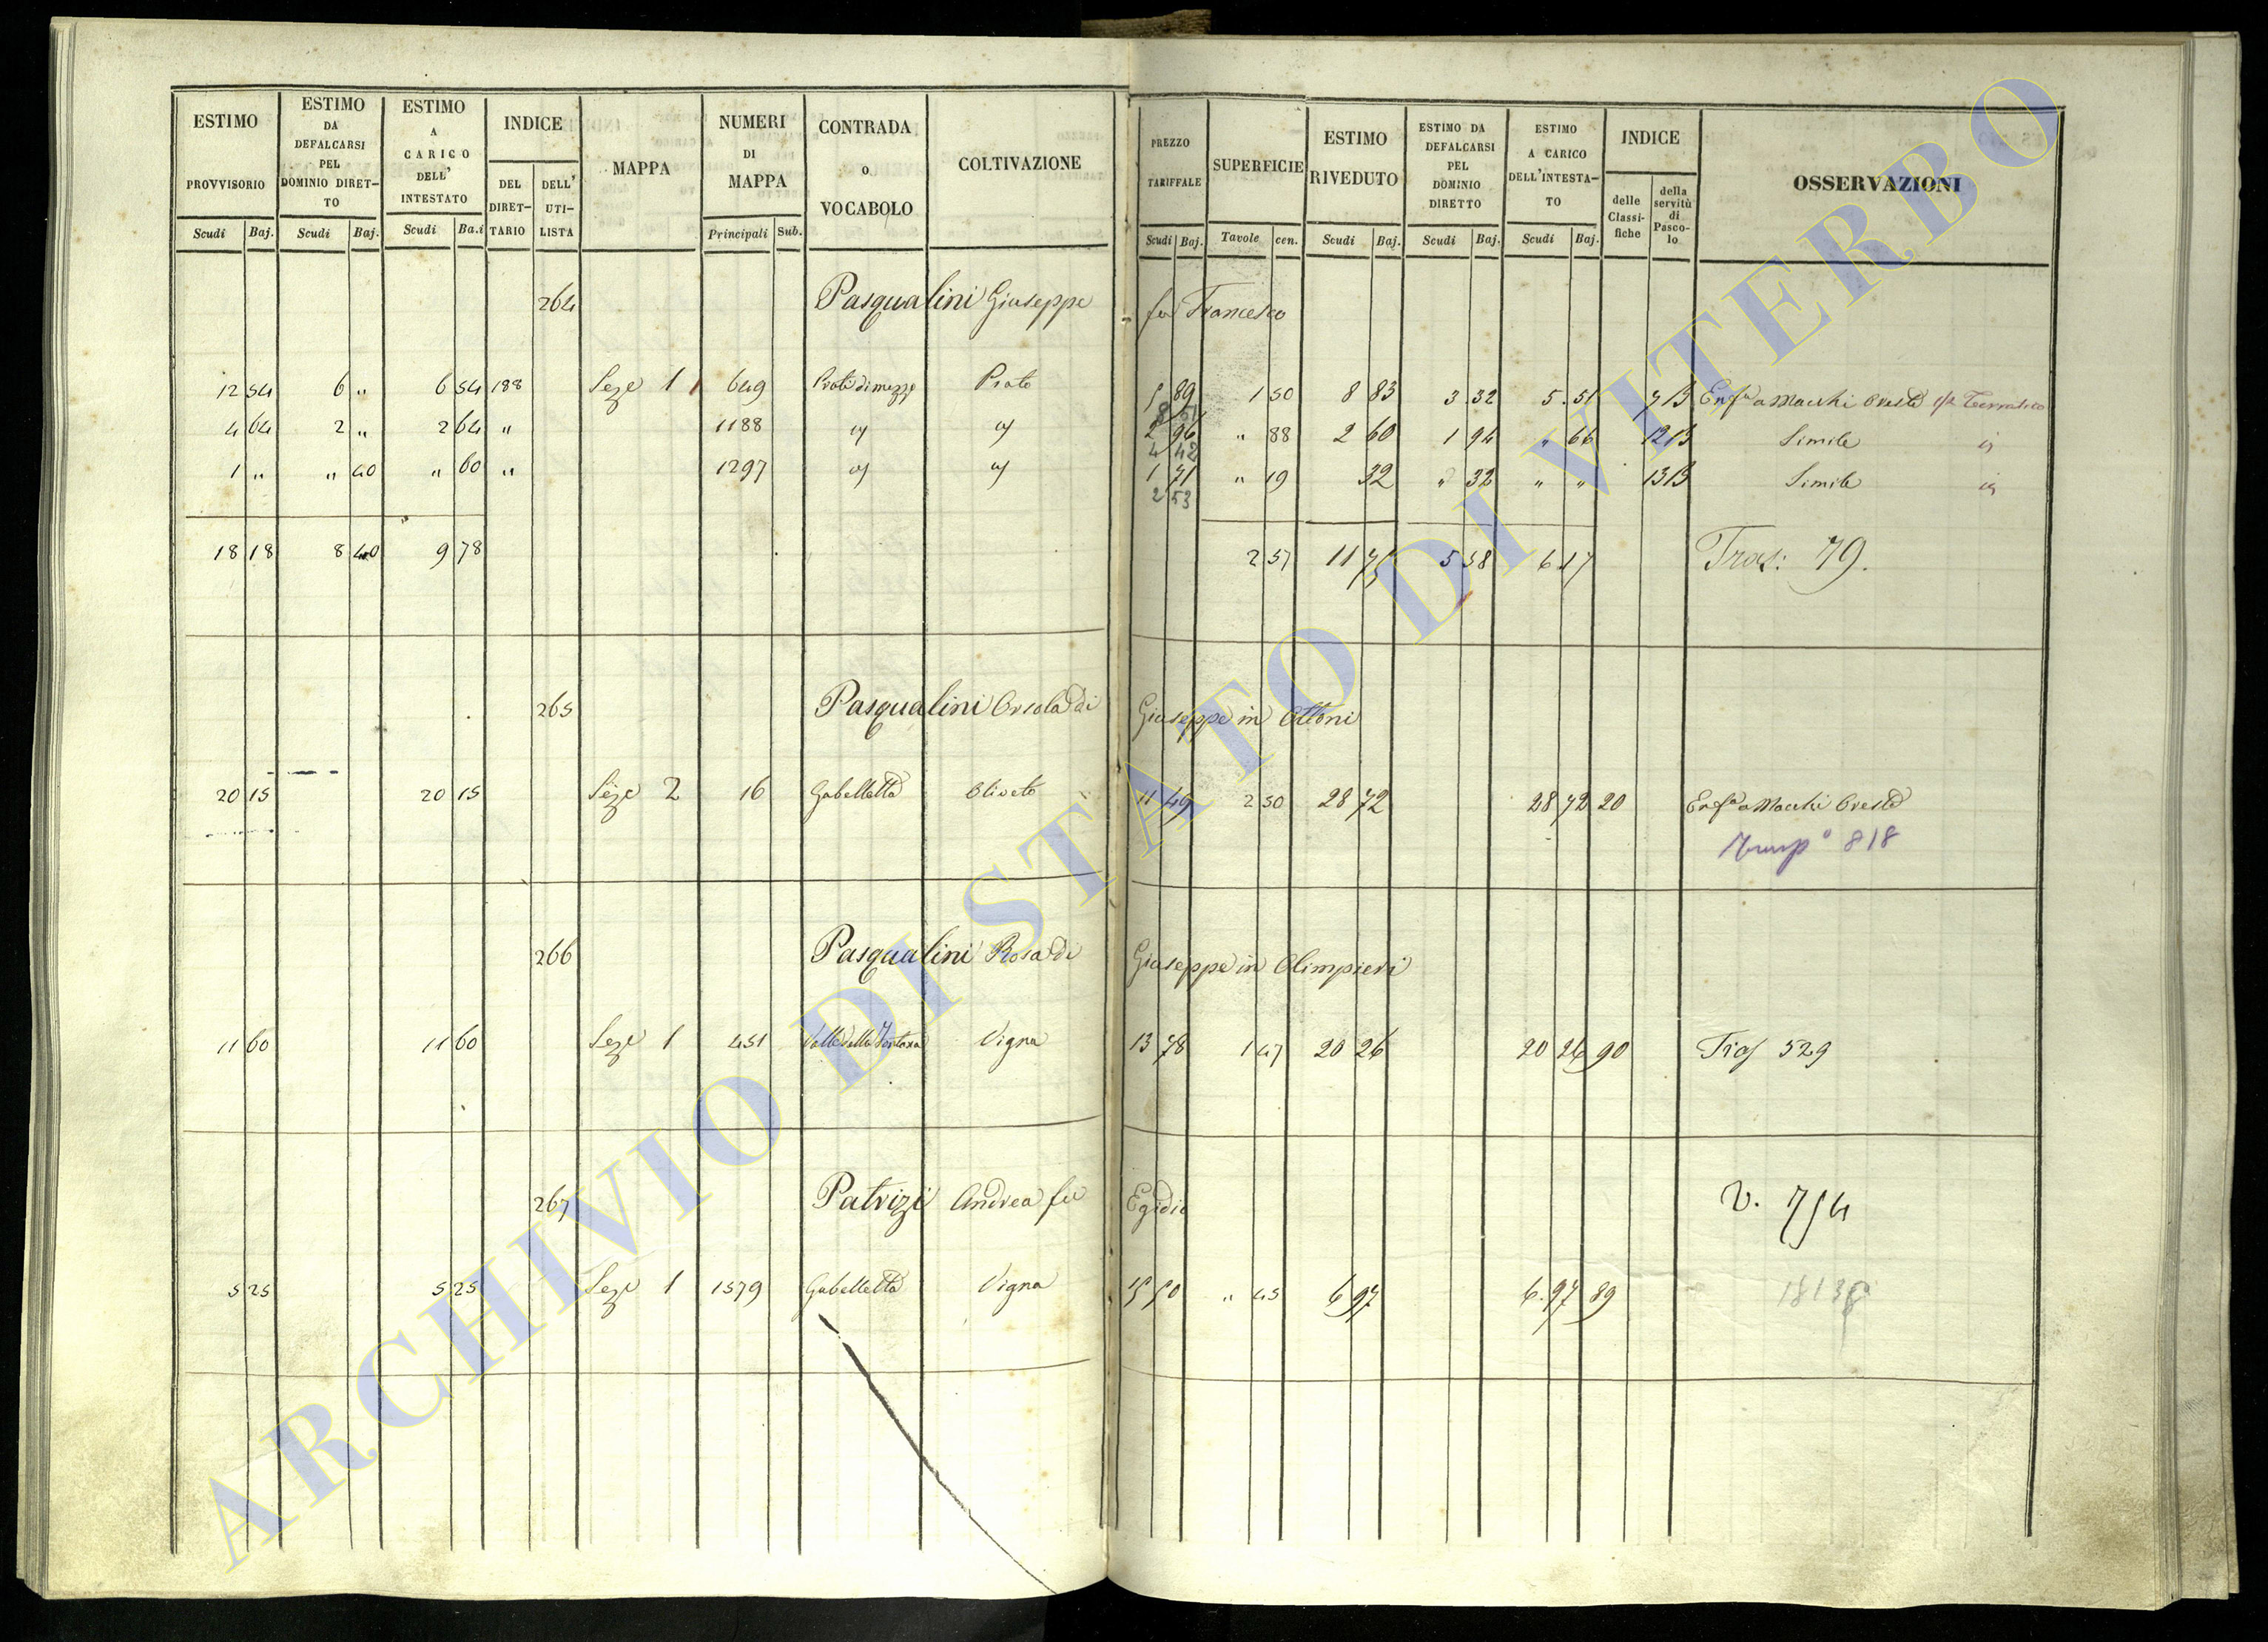 ESTIMO PROVVISORIO Scudi Baj.
ESTIMO DA DEFALCARSI PEL DOMINIO DIRET-TO Scudi Baj.
ESTIMO A CARICO DELL' INTESTATO Scudi Ba.i
INDICE DEL DIRET-TARIO DELL' UTI-LISTA
MAPPA
NUMERI DI MAPPA Principali Sub.
CONTRADA O VOCABOLO
COLTIVAZIONE
PREZZO TARIFFALE Scudi Baj.
SUPERFICIE Tavole cen.
ESTIMO RIVEDUTO Scudi Baj.
ESTIMO DA DEFALCARSI PEL DOMINIO DIRETTO Scudi Baj.
ESTIMO A CARICO DELL'INTESTA-TO Scudi Baj.
INDICE delle Classi-fiche della servitù di Pasco-lo
OSSERVAZIONI
264 Pasqualini Giuseppe fu Francesco
12 54 6 " 6 54 188 Seze 1 649 Prati di mezzo Prato 5 89 1 50 8 83 3.32 5.51 7 B Enfa a Macchi Oreste
8 51
4 64 2 " 2 64 " 1188 2 96 " 88 2 60 1 94 " 66 12 B Simile
4 42
1 " " 40 " 60 " 1297 1 71 " 19 32 " 32 " " 13 B Simile
2 53
18 18 8 40 9 78 2 57 11 75 5 58 6 17 Tras: 79.
265 Pasqualini Orsola di Giuseppe in Ottoni
20 15 20 15 Seze 2 16 Gabelletta Oliveto 11 49 2 50 28 72 28 72 20 Enfa a Macchi Oreste
818
266 Pasqualini Rosa di Giuseppe in Olimpieri
11 60 11 60 Seze 1 451 Valle della Fontana Vigna 13 78 1 47 20 26 20 26 90 Tras 529
267 Patrizi Andrea fu Egidio V. 754
5 25 5 25 Seze 1 1579 Gabelletta Vigna 15 50 " 45 6 97 6.97 89
ARCHIVIO DI STATO DI VITERBO